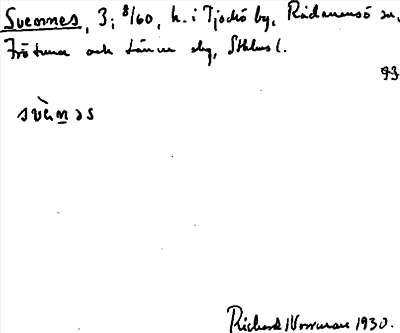 Svennes, 3; 8/60, h. i Tjockö by, Rådmansö sn,
Frötuna och Länna sky, Sthlms l.
93
svèn̲əs
Richard Norrman 1930.